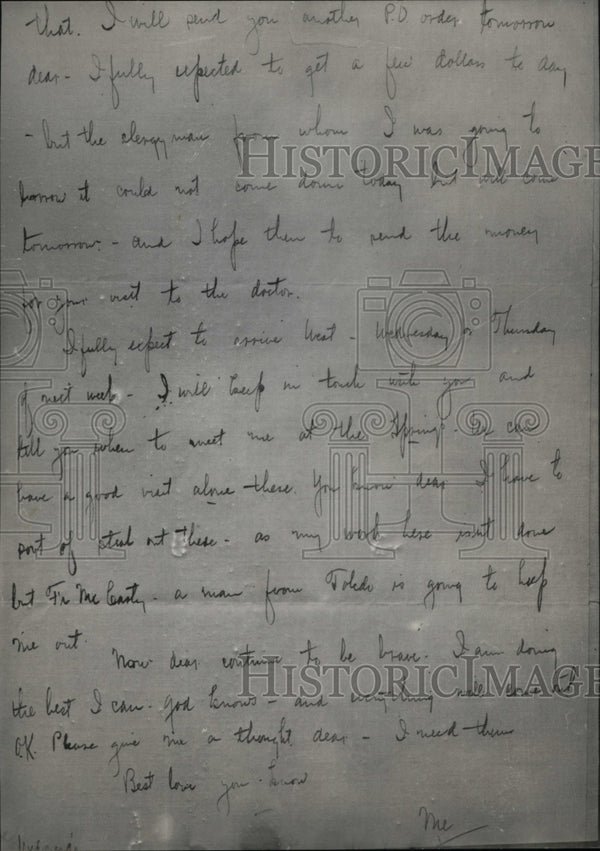 that. I will send you another P.O order tomorrow
dear - I fully expected to get a few dollars to day
- but the clergyman from whom I was going to
borrow it could not come down today but will come
tomorrow. - and I hope then to send the money
for your visit to the doctor.
I fully expect to arrive West - Wednesday or Thursday
of next week - I will keep in touch with you and
tell you when to meet me at the Springs - we can
have a good visit alone there. You know dear I have to
sort of steal out there - as my work here isn't done
but Fr Mc Carty - a man from Toledo is going to help
me out.
Now dear continue to be brave. I am doing
the best I can. God knows - and everything will come out
O.K. Please give me a thought dear - I need them
Best love you know
Me
HISTORICIMAGES
HISTORICIMAGES